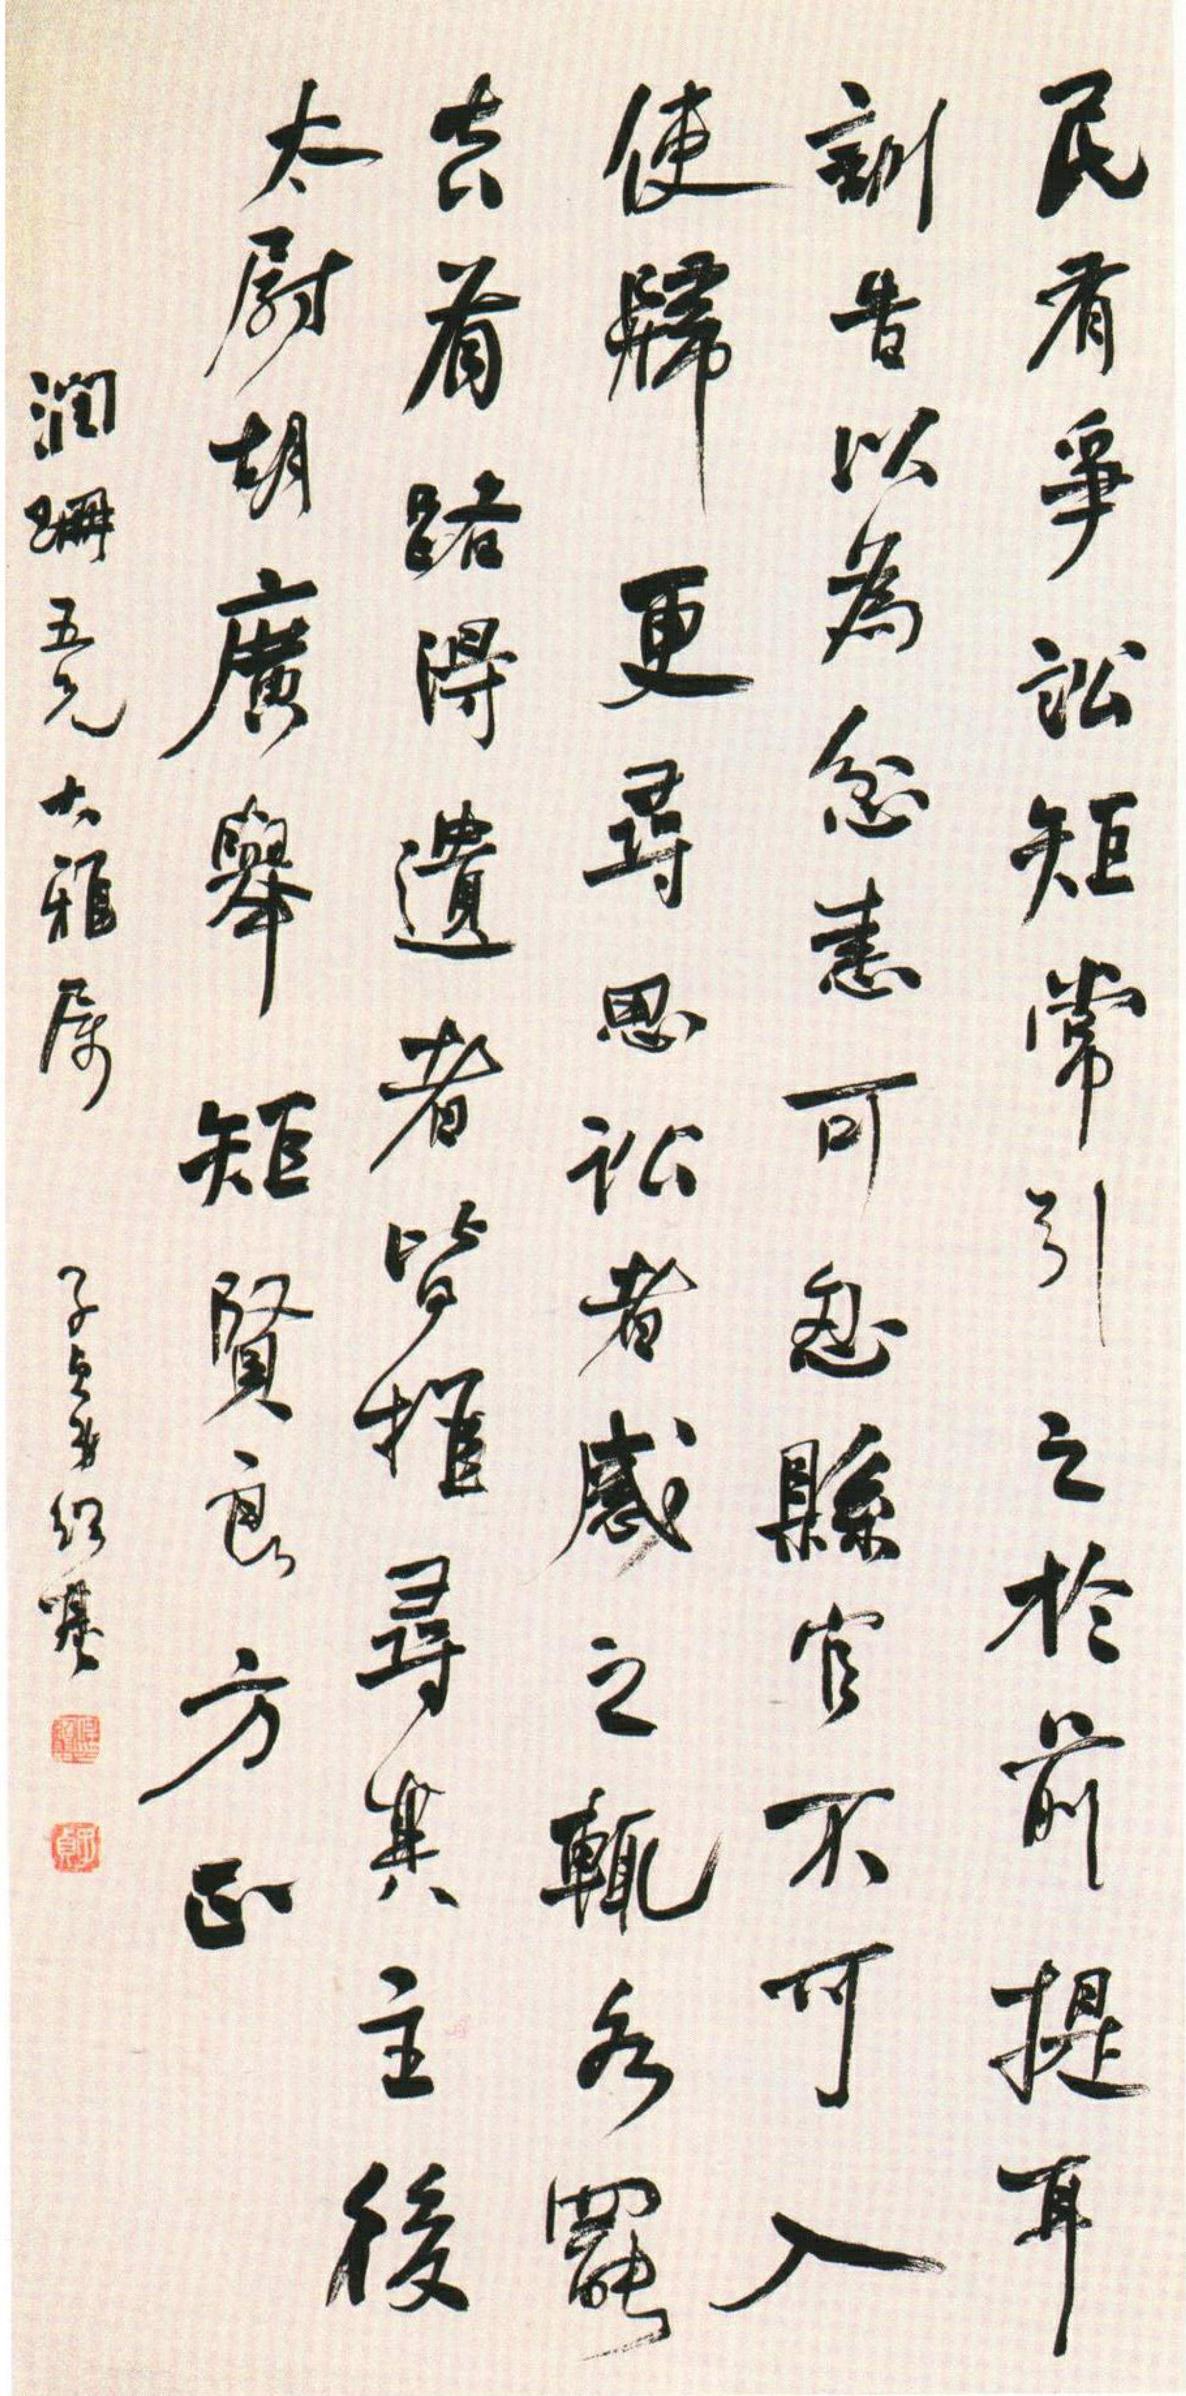 民有爭訟矩常引之於前提耳
訓告以為忿恚可忍縣官不可入
使歸更尋思訟者感之輒各罷
去有路得遺者皆推尋其主後
太尉胡廣舉矩賢良方正
潤珊五兄大雅屬
子貞弟紹基
子貞